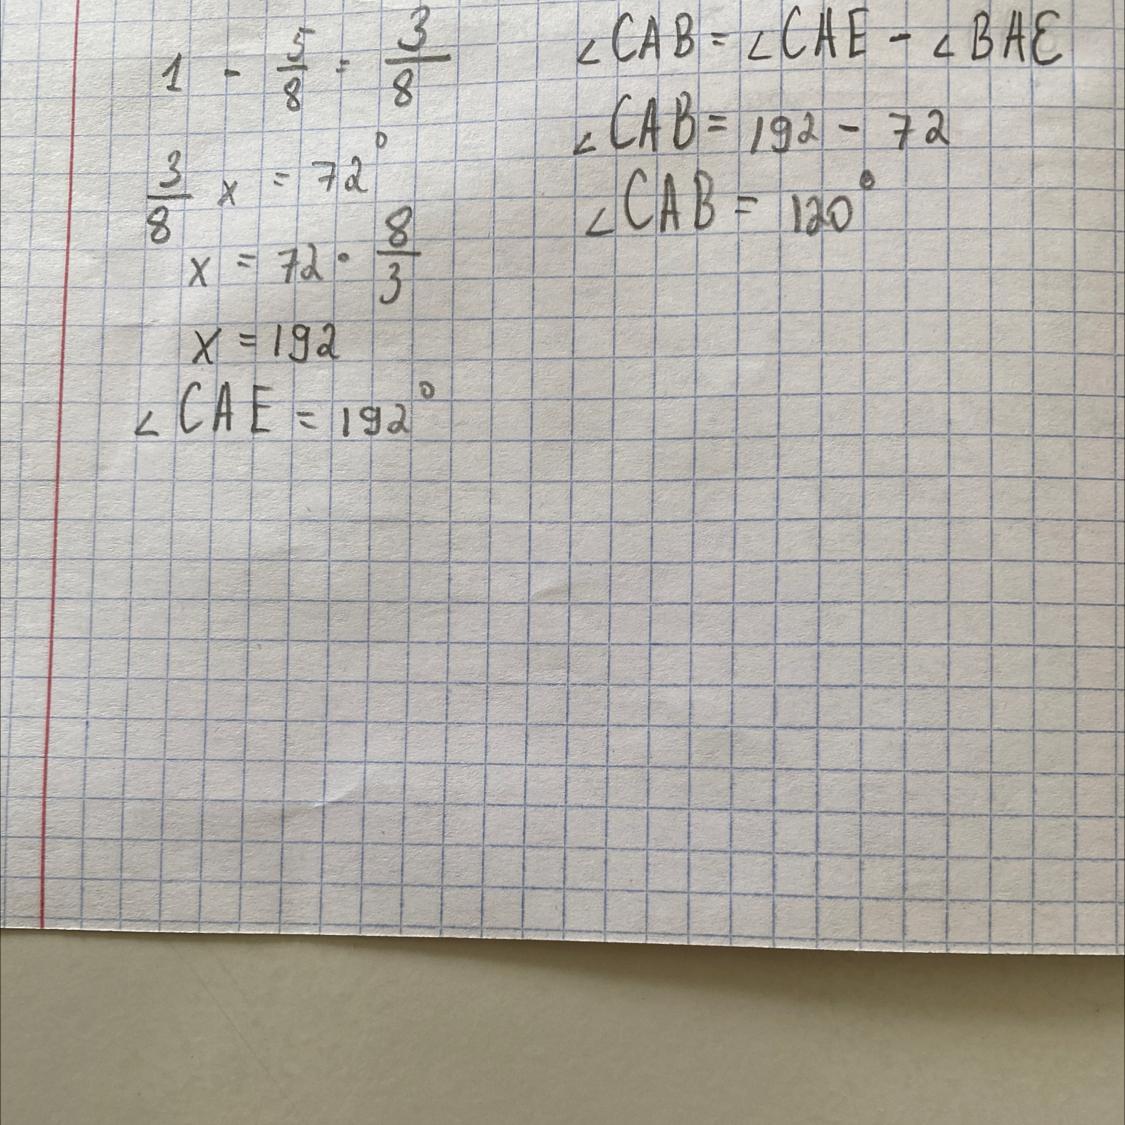 1 - 5/8 = 3/8
3/8 x = 72°
x = 72 · 8/3
x = 192
∠CAE = 192°
∠CAB = ∠CAE - ∠BAE
∠CAB = 192 - 72
∠CAB = 120°